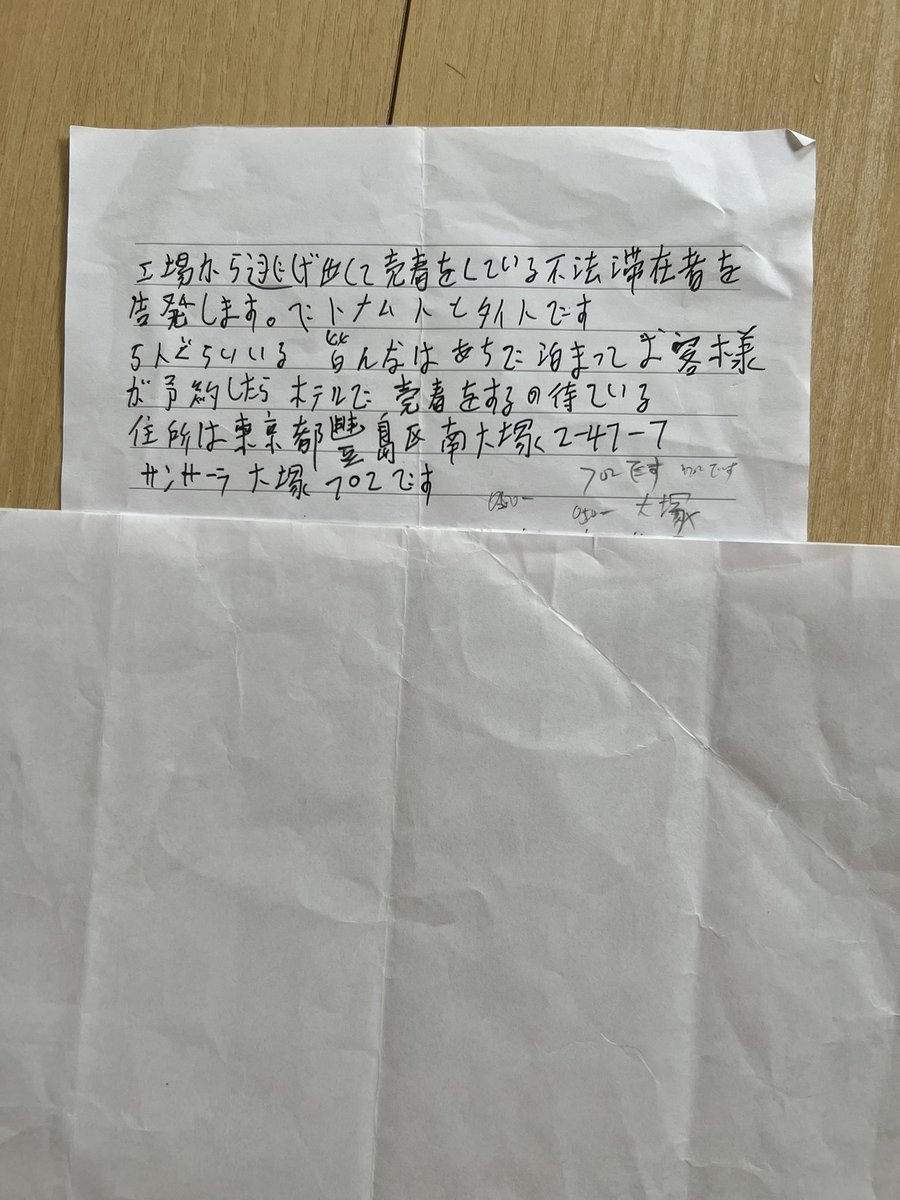 工場から逃げ出して売春をしている不法滞在者を
告発します。ベトナム人とタイ人です
5人ぐらいいる 皆んなはあちで泊まってお客様
が予約したらホテルで売春をするの待ている
住所は東京都豊島区南大塚2-47-7
サンサーラ大塚702です
702です 702です
050- 050- 大塚